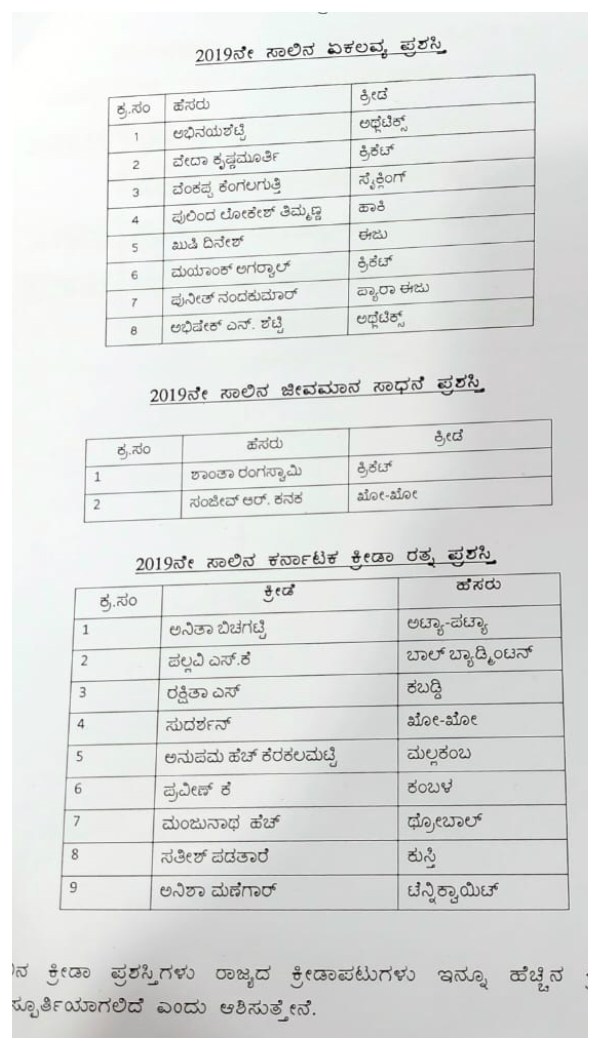 2019ನೇ ಸಾಲಿನ ಏಕಲವ್ಯ ಪ್ರಶಸ್ತಿ
ಕ್ರ.ಸಂ ಹೆಸರು ಕ್ರೀಡೆ
1 ಅಭಿನಯಶೆಟ್ಟಿ ಅಥ್ಲೆಟಿಕ್ಸ್
2 ವೇದಾ ಕೃಷ್ಣಮೂರ್ತಿ ಕ್ರಿಕೆಟ್
3 ವೆಂಕಪ್ಪ ಕೆಂಗಲಗುತ್ತಿ ಸೈಕ್ಲಿಂಗ್
4 ಪುಲಿಂದ ಲೋಕೇಶ್ ತಿಮ್ಮಣ್ಣ ಹಾಕಿ
5 ಖುಷಿ ದಿನೇಶ್ ಈಜು
6 ಮಯಾಂಕ್ ಅಗರ್‍ವಾಲ್ ಕ್ರಿಕೆಟ್
7 ಪುನೀತ್ ನಂದಕುಮಾರ್ ಪ್ಯಾರಾ ಈಜು
8 ಅಭಿಷೇಕ್ ಎನ್. ಶೆಟ್ಟಿ ಅಥ್ಲೆಟಿಕ್ಸ್
2019ನೇ ಸಾಲಿನ ಜೀವಮಾನ ಸಾಧನೆ ಪ್ರಶಸ್ತಿ
ಕ್ರ.ಸಂ ಹೆಸರು ಕ್ರೀಡೆ
1 ಶಾಂತಾ ರಂಗಸ್ವಾಮಿ ಕ್ರಿಕೆಟ್
2 ಸಂಜೀವ್ ಆರ್. ಕನಕ ಖೋ-ಖೋ
2019ನೇ ಸಾಲಿನ ಕರ್ನಾಟಕ ಕ್ರೀಡಾ ರತ್ನ ಪ್ರಶಸ್ತಿ
ಕ್ರ.ಸಂ ಕ್ರೀಡೆ ಹೆಸರು
1 ಅನಿತಾ ಬಿಚಗಟ್ಟಿ ಅಟ್ಯಾ-ಪಟ್ಯಾ
2 ಪಲ್ಲವಿ ಎಸ್.ಕೆ ಬಾಲ್ ಬ್ಯಾಡ್ಮಿಂಟನ್
3 ರಕ್ಷಿತಾ ಎಸ್ ಕಬಡ್ಡಿ
4 ಸುದರ್ಶನ್ ಖೋ-ಖೋ
5 ಅನುಪಮ ಹೆಚ್ ಕೆರಕಲಮಟ್ಟಿ ಮಲ್ಲಕಂಬ
6 ಪ್ರವೀಣ್ ಕೆ ಕಂಬಳ
7 ಮಂಜುನಾಥ ಹೆಚ್ ಥ್ರೋಬಾಲ್
8 ಸತೀಶ್ ಪಡತಾರೆ ಕುಸ್ತಿ
9 ಅನಿಶಾ ಮಣೆಗಾರ್ ಟೆನ್ನಿಕ್ವಾಯಿಟ್
ಕ್ರೀಡಾ ಪ್ರಶಸ್ತಿಗಳು ರಾಜ್ಯದ ಕ್ರೀಡಾಪಟುಗಳು ಇನ್ನೂ ಹೆಚ್ಚಿನ
ಸ್ಪೂರ್ತಿಯಾಗಲಿದೆ ಎಂದು ಆಶಿಸುತ್ತೇನೆ.